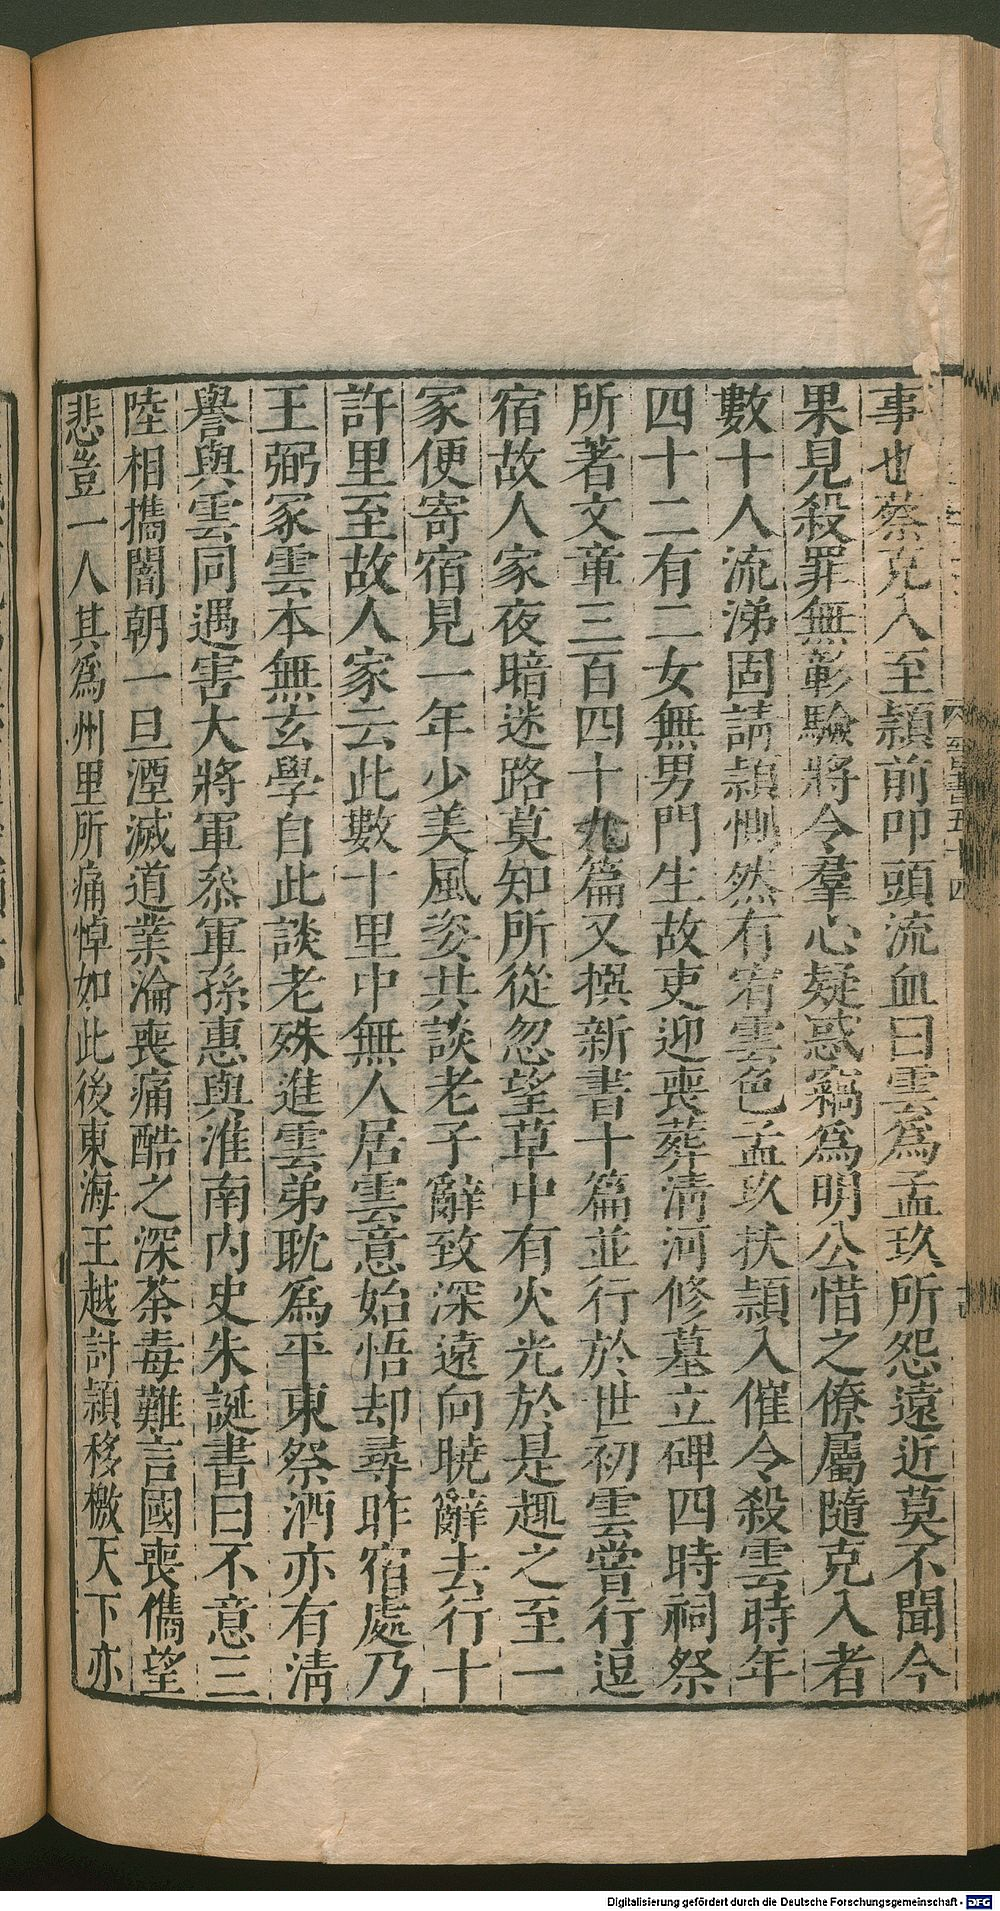 事也蔡克入至頴前叩頭流血曰雲爲孟玖所怨遠近莫不聞今
果見殺罪無彰驗將令羣心疑惑竊爲明公惜之僚屬隨克入者
數十人流涕固請頴惻然有宥雲色孟玖扶頴入催令殺雲時年
四十二有二女無男門生故吏迎喪葬清河修墓立碑四時祠祭
所著文章三百四十九篇又撰新書十篇並行於世初雲嘗行逗
宿故人家夜暗迷路莫知所從忽望草中有火光於是趣之至一
家便寄宿見一年少美風姿共談老子辭致深遠向曉辭去行十
許里至故人家云此數十里中無人居雲意始悟却尋昨宿處乃
王弼冢雲本無玄學自此談老殊進雲弟耽爲平東祭酒亦有清
譽與雲同遇害大將軍叅軍孫惠與淮南內史朱誕書曰不意三
陸相攜闇朝一旦湮滅道業淪喪痛酷之深荼毒難言國喪儁望
悲豈一人其爲州里所痛悼如此後東海王越討頴移檄天下亦
晉書五十四
Digitalisierung gefördert durch die Deutsche Forschungsgemeinschaft - DFG